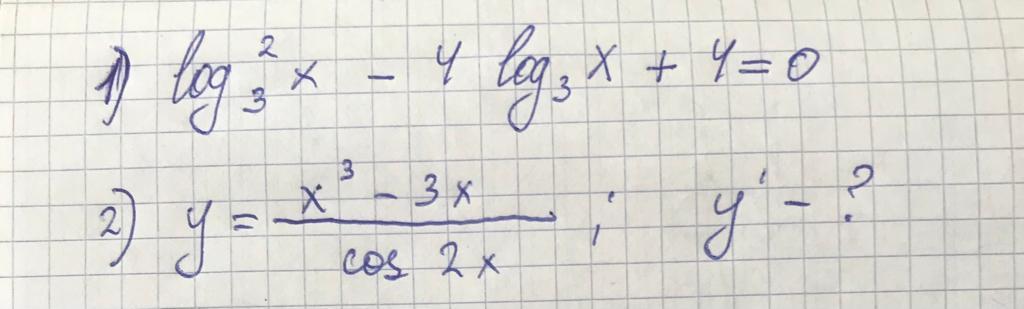 1) log₃²x - 4 log₃x + 4 = 0
2) y = (x³ - 3x)/(cos 2x) ; y' - ?